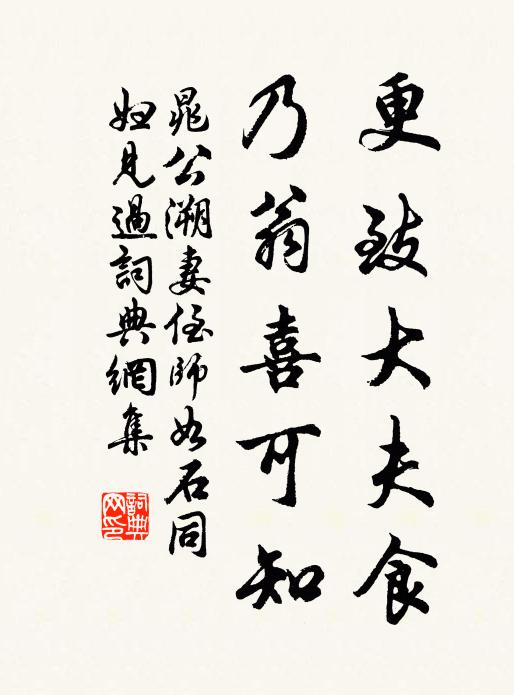 更致大夫食
乃翁喜可知
晁公溯妻侄師如石同
妲見過詞典網集
詞典
网印